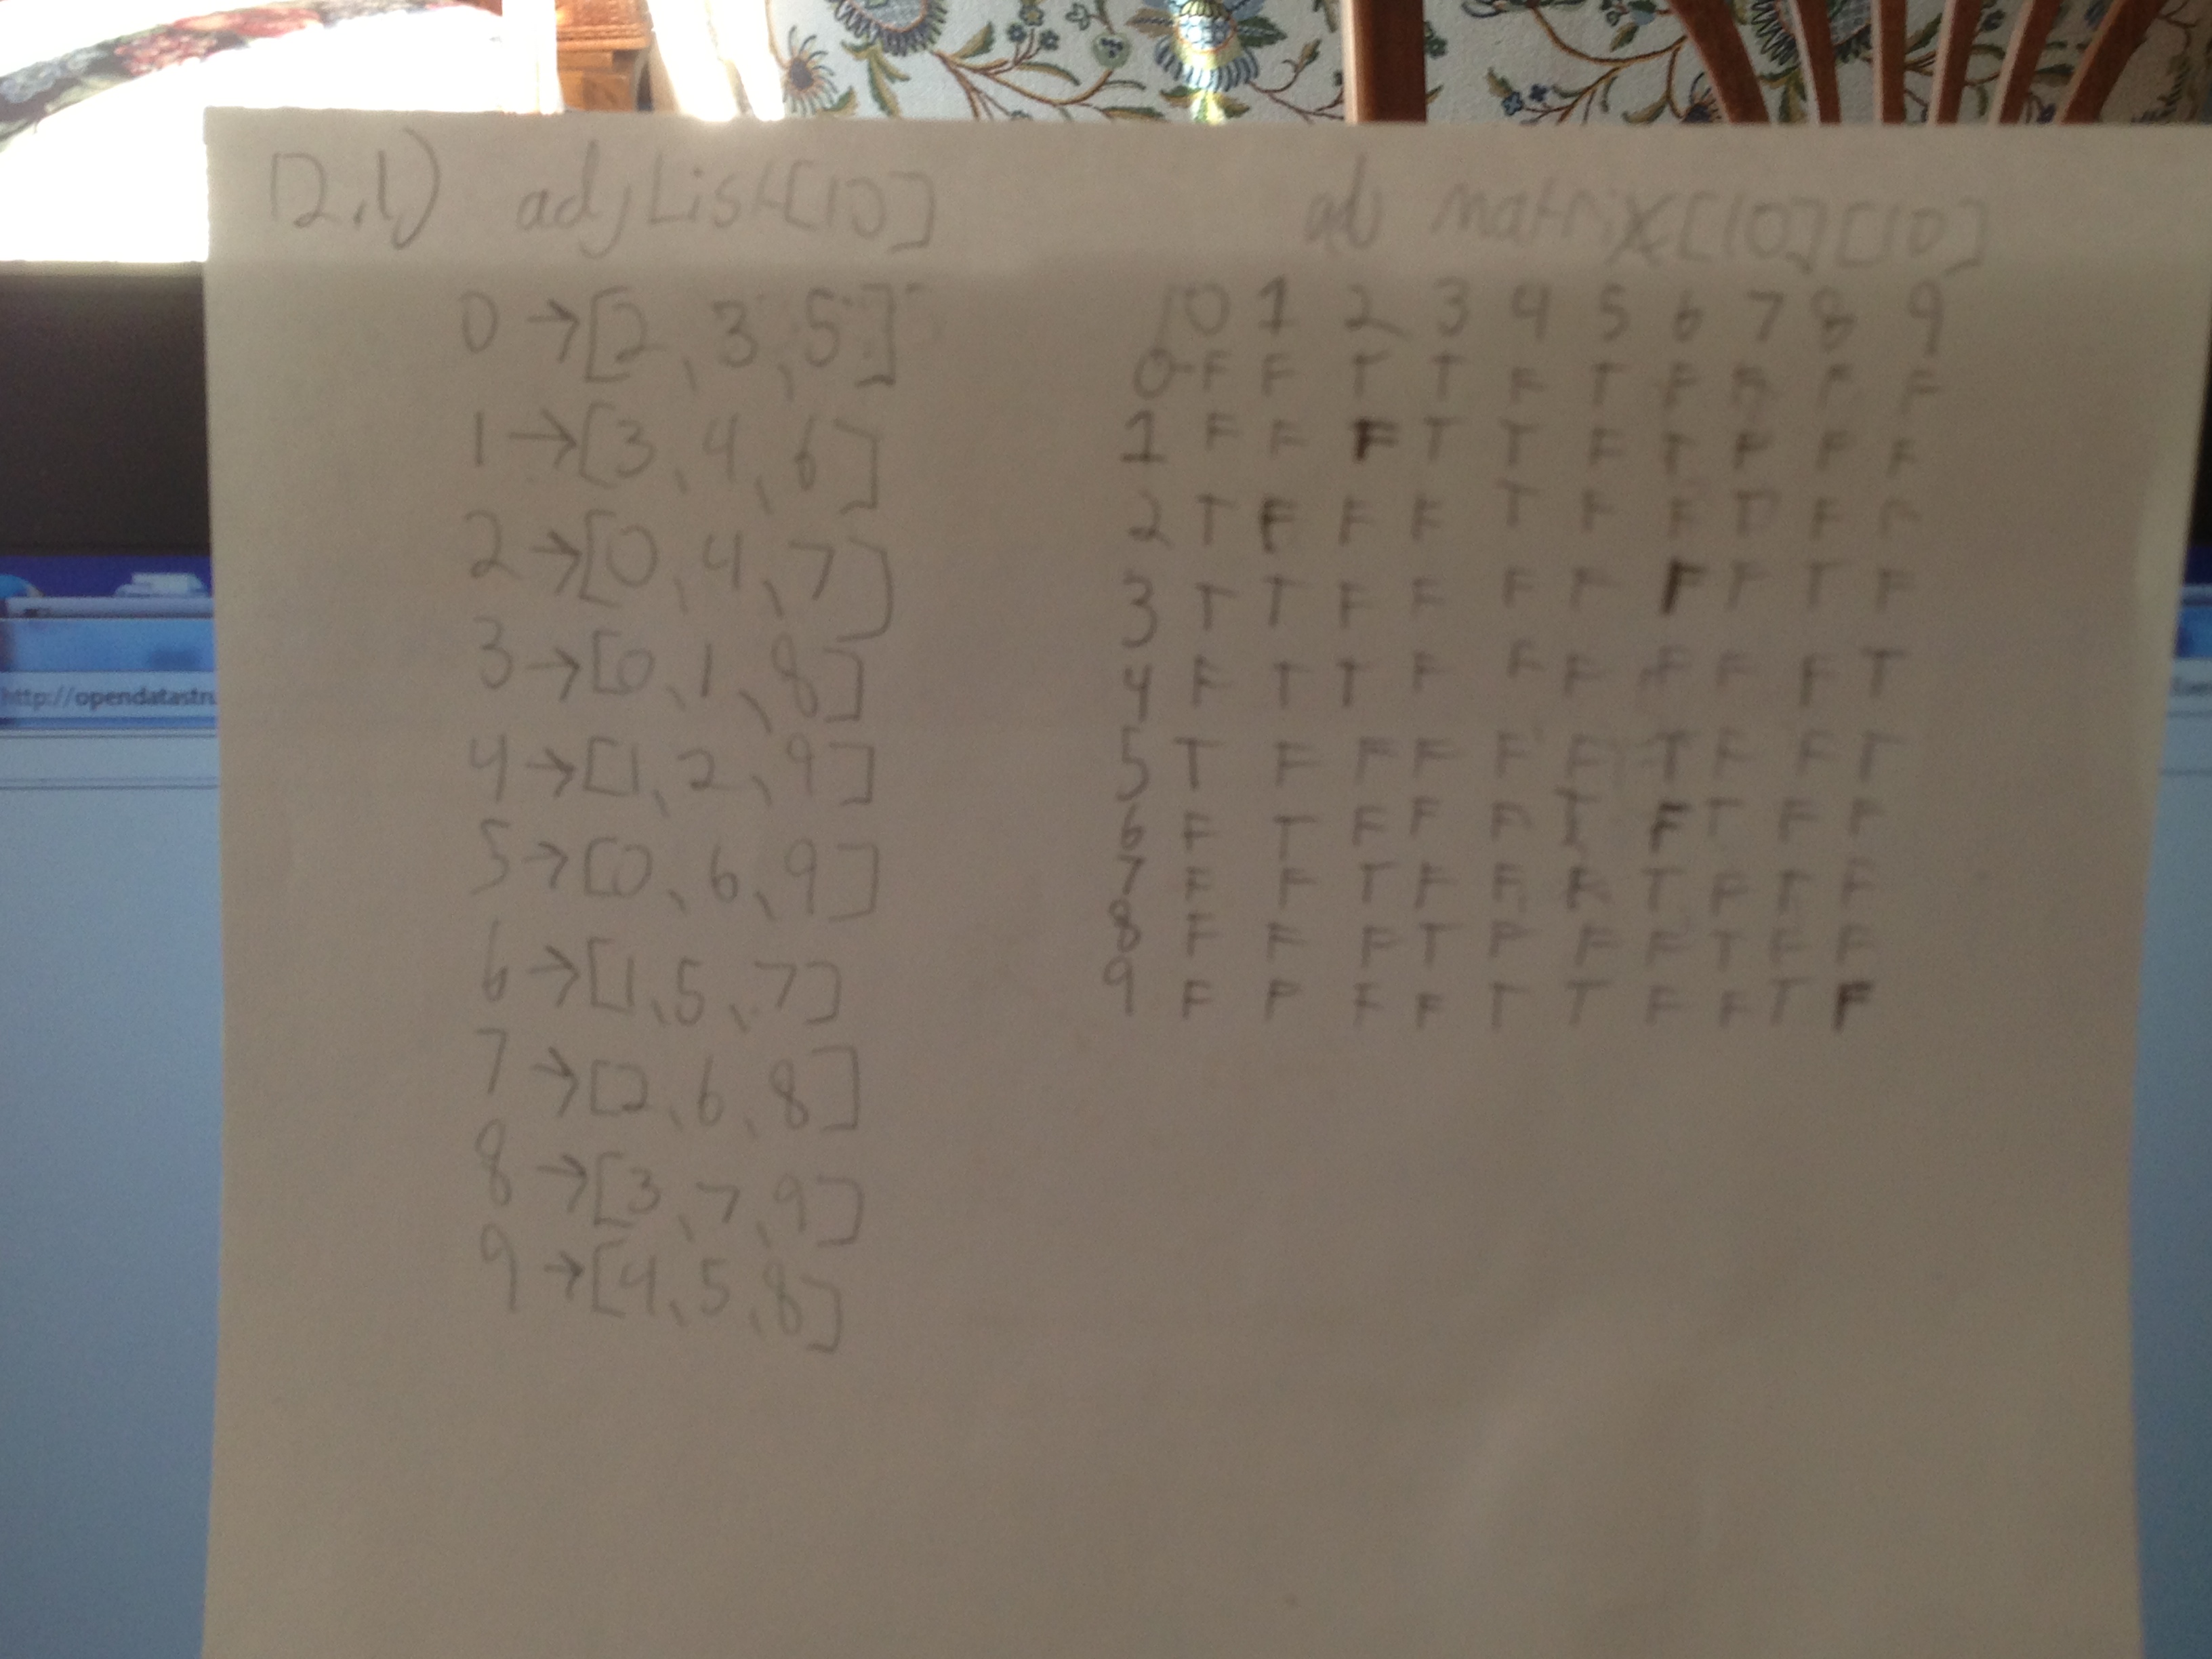 12.1) adjList[10]
0 → [2, 3, 5]
1 → [3, 4, 6]
2 → [0, 4, 7]
3 → [0, 1, 8]
4 → [1, 2, 9]
5 → [0, 6, 9]
6 → [1, 5, 7]
7 → [2, 6, 8]
8 → [3, 7, 9]
9 → [4, 5, 8]
adj matrix[10][10]
0 1 2 3 4 5 6 7 8 9
0 F F T T F T F F F F
1 F F F T T F T F F F
2 T F F F T F F T F F
3 T T F F F F F F T F
4 F T T F F F F F F T
5 T F F F F F T F F T
6 F T F F F T F T F F
7 F F T F F F T F T F
8 F F F T F F F T F F
9 F F F F T T F F T F
http://opendatastru